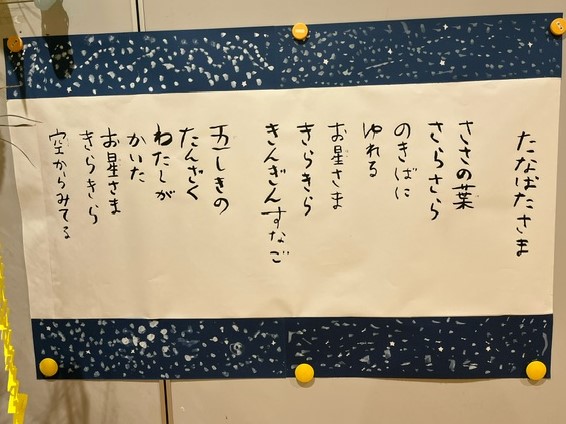 たなばたさま
ささの葉
さらさら
のきばに
ゆれる
お星さま
きらきら
きんぎんすなご
五しきの
たんざく
わたしが
かいた
お星さま
きらきら
空からみてる